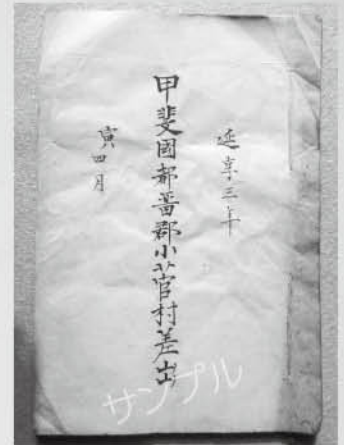 延享三年
甲斐國都留郡小菅村差出
寅四月
サンプル